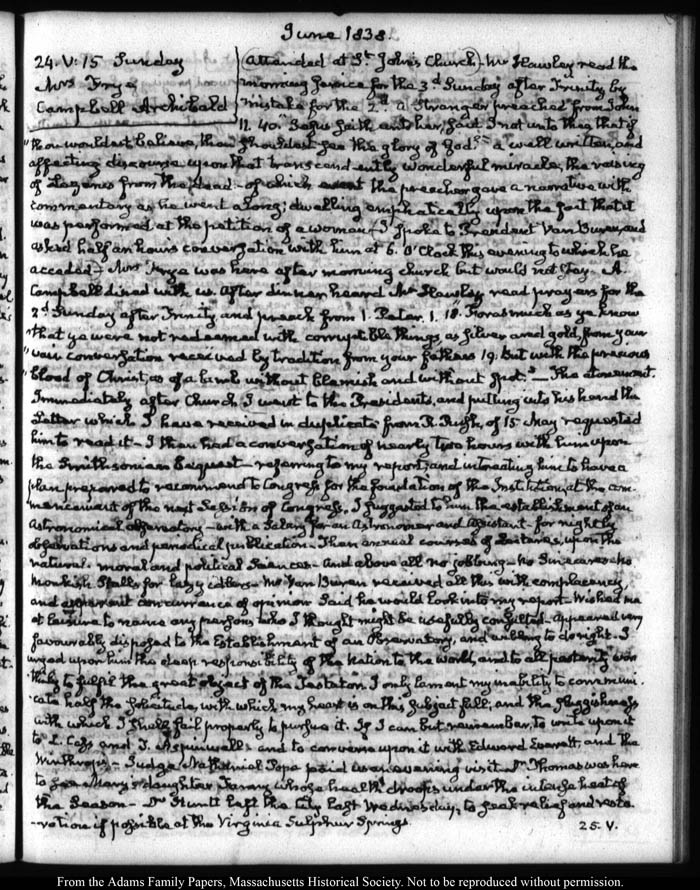 June 1838.
24. V:15 Sunday
Mrs Frye
Campbell Archibald
Attended at St John's Church. Mr Hawley read the
morning service for the 3d Sunday after Trinity by
mistake for the 2d. A Stranger preached from John
11. 40. "Jesus saith unto her, said I not unto thee that if
"thou wouldest believe, thou shouldest see the glory of God" a well written, and
affecting discourse upon that transcend-ently wonderful miracle, the raising
of Lazarus from the dead - of which the preacher gave a narrative with
commentary as he went along; dwelling emphatically upon the fact that it
was performed at the petition of a woman - I spoke to President Van Buren, and
asked half an hours conversation with him at 6. O'Clock this evening to which he
acceded - Mrs Frye was here after morning church but would not stay. A.
Campbell dined with us. After dinner heard Mr Hawley read prayers for the
2d Sunday after Trinity and preach from 1. Peter. 1. 18. "Forasmuch as ye know
"that ye were not redeemed with corruptible things, as silver and gold, from your
"vain conversation received by tradition from your fathers 19. But with the precious
"blood of Christ, as of a lamb without blemish and without spot." - The atonement.
Immediately after Church I went to the Presidents, and putting into his hand the
Letter which I have received in duplicate from R. Rush, of 15 May requested
him to read it - I then had a conversation of nearly two hours with him upon
the Smithsonian Bequest - referring to my report, and intreating him to have a
plan prepared to recommend to Congress for the foundation of the Institution, at the com-
mencement of the next Session of Congress. I suggested to him the establishment of an
Astronomical observatory - with a Salary for an Astronomer and Assistant - for nightly
observations and periodical publication - Then annual courses of Lectures, upon the
natural - moral and political Sciences - And above all no jobbing - no Sinecures - no
monkish Stalls for lazy idlers - Mr Van Buren received all this with complacency,
and apparent concurrence of opinion. Said he would look into my report - Wished me
at leisure to name any persons who I thought might be usefully consulted - Appeared very
favourably disposed to the Establishment of an Observatory, and willing to do right. I
urged upon him the deep responsibility of the Nation to the world, and to all posterity wor-
thily to fulfil the great object of the Testator. I only lament my inability to communi-
cate half the solicitude, with which my heart is on this subject full, and the sluggishness
with which I shall fail properly to pursue it. If I can but remember, to write upon it
to L. Cass and T. Aspinwall - and to converse upon it with Edward Everett, and the
Winthrops - Judge Nathaniel Pope paid us an evening visit Dr Thomas was here
to see Mary's daughter, Fanny whose health droops under the intense heat of
the Season - Dr Huntt left the City last Wednesday, to seek relief and resto-
-ration if possible at the Virginia Sulphur Springs.
25. V.
From the Adams Family Papers, Massachusetts Historical Society. Not to be reproduced without permission.